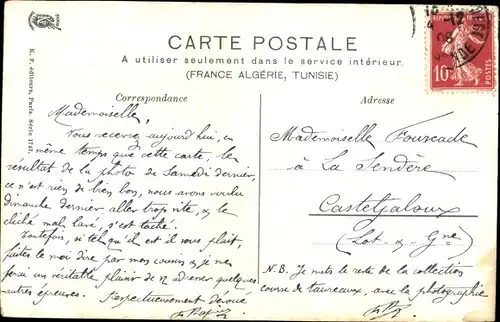 CARTE POSTALE
A utiliser seulement dans le service intérieur.
(FRANCE ALGÉRIE, TUNISIE)
K. F. éditeurs, Paris. Série 1747
Correspondance
Mademoiselle,
Vous recevrez aujourd'hui, en
même temps que cette carte, le
résultat de la photo de Samedi dernier,
ce n'est rien de bien bon, nous avons voulu
dimanche dernier, aller trop vite, & le
cliché mal lavé, s'est taché.
Toutefois, si tel qu'il est il vous plait,
faites le moi dire par mon cousin & je me
ferai un véritable plaisir de vs adresser quelques
autres épreuves. Respectueusement dévoué
Adresse
Mademoiselle Fourcade
à La Sendère
Casteljaloux
(Lot-&-Gne)
N.B. Je mets le reste de la collection
course de taureaux, avec la photographie
10
POSTES